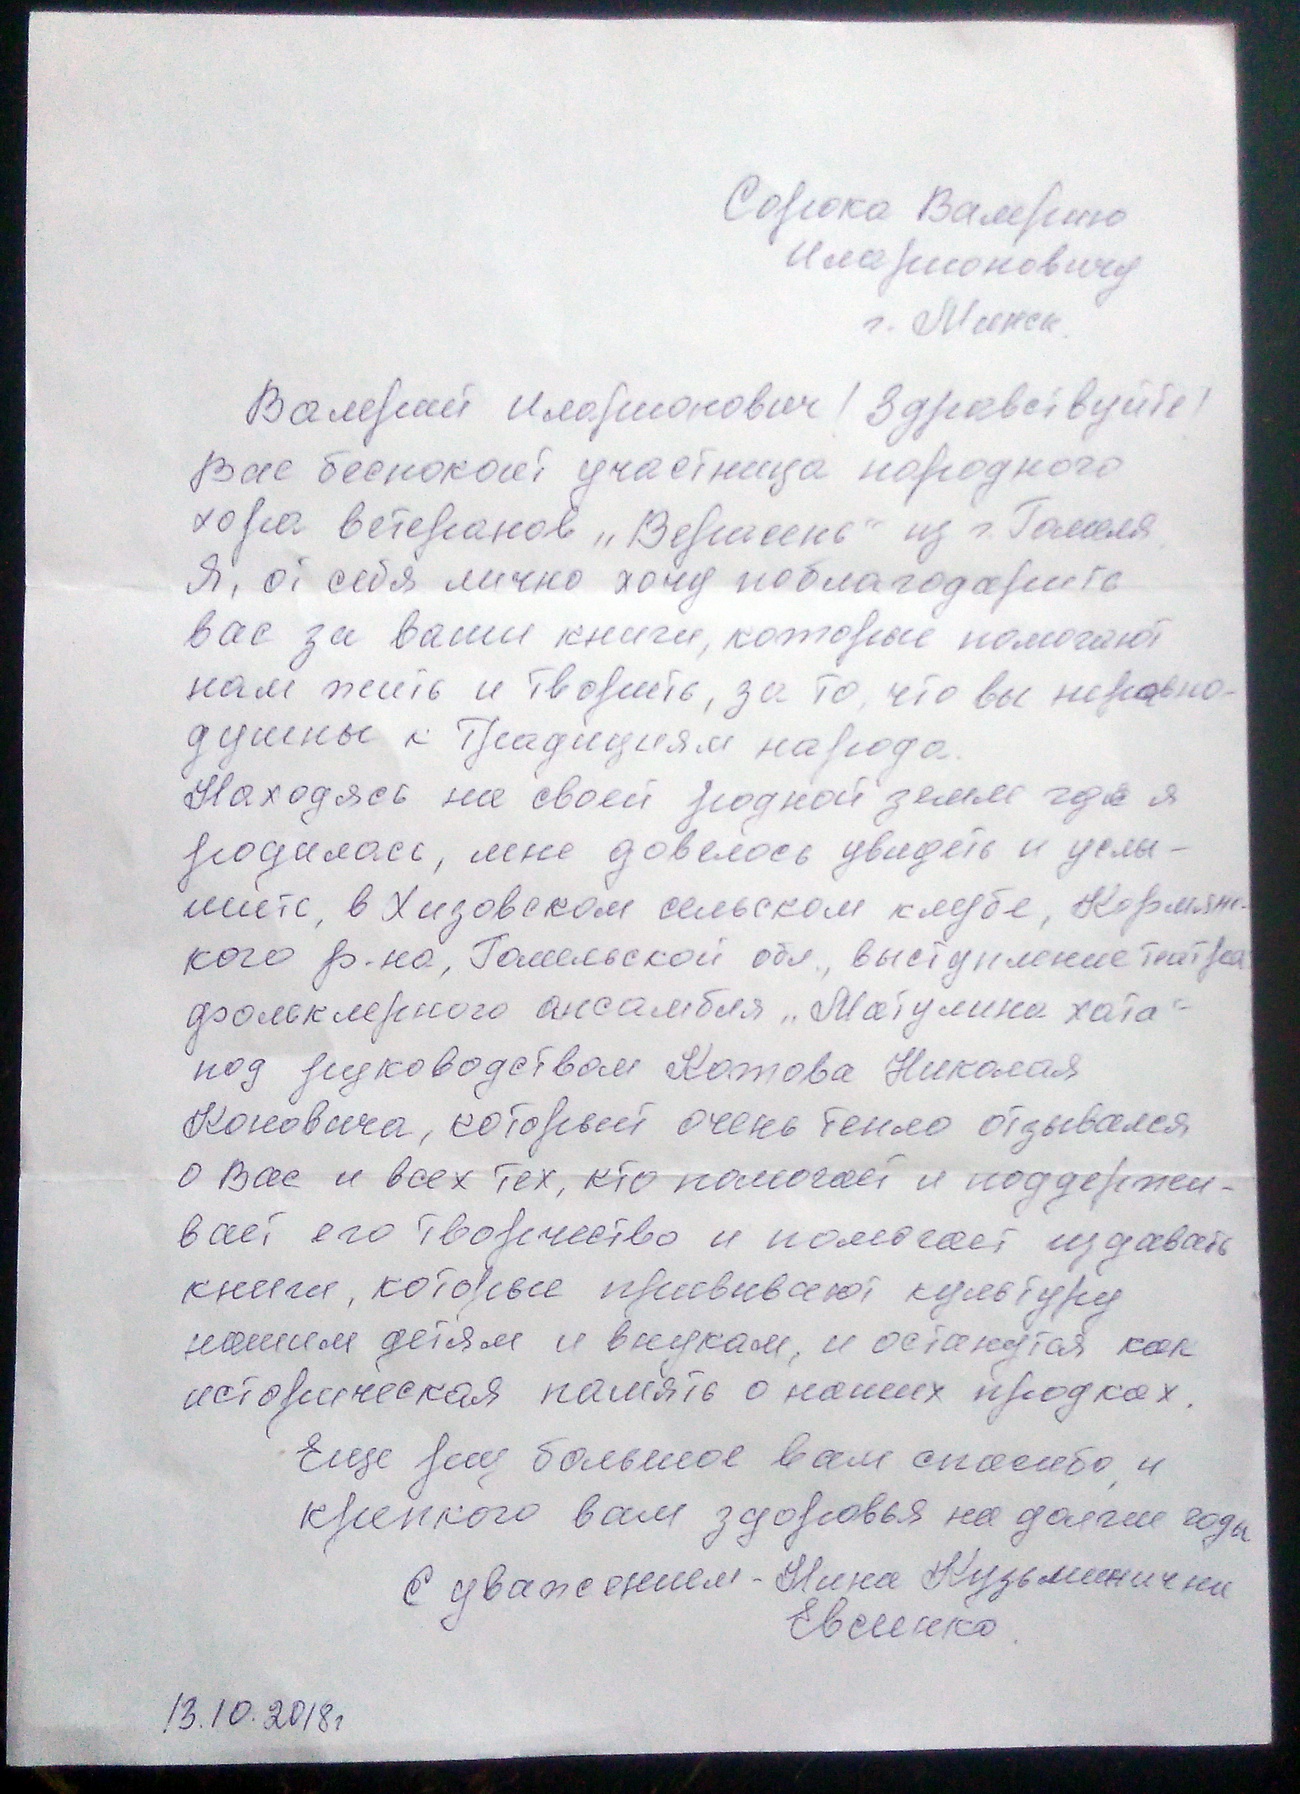 Сорока Валерию
Иларионовичу
г. Минск.
Валерий Иларионович! Здравствуйте!
Вас беспокоит участница народного
хора ветеранов „Верасень“ из г. Гомеля.
Я, от себя лично хочу поблагодарить
вас за ваши книги, которые помогают
нам жить и творить, за то, что вы неравно-
душны к традициям народа.
Находясь на своей родной земле где я
родилась, мне довелось увидеть и услы-
шить, в Хизовском сельском клубе, Кормянс-
кого р-на, Гомельской обл., выступление театра
фольклерного ансамбля „Матулина хата“
под руководством Котова Николая
Коновича, который очень тепло отзывался
о Вас и всех тех, кто помогает и поддержи-
вает его творчество и помогает издавать
книги, которые прививают культуру
нашим детям и внукам, и останутся как
историческая память о наших предках.
Еще раз большое вам спасибо, и
крепкого вам здоровья на долгие годы
С уважением - Нина Кузьминична
Евсиенко.
13.10.2018г